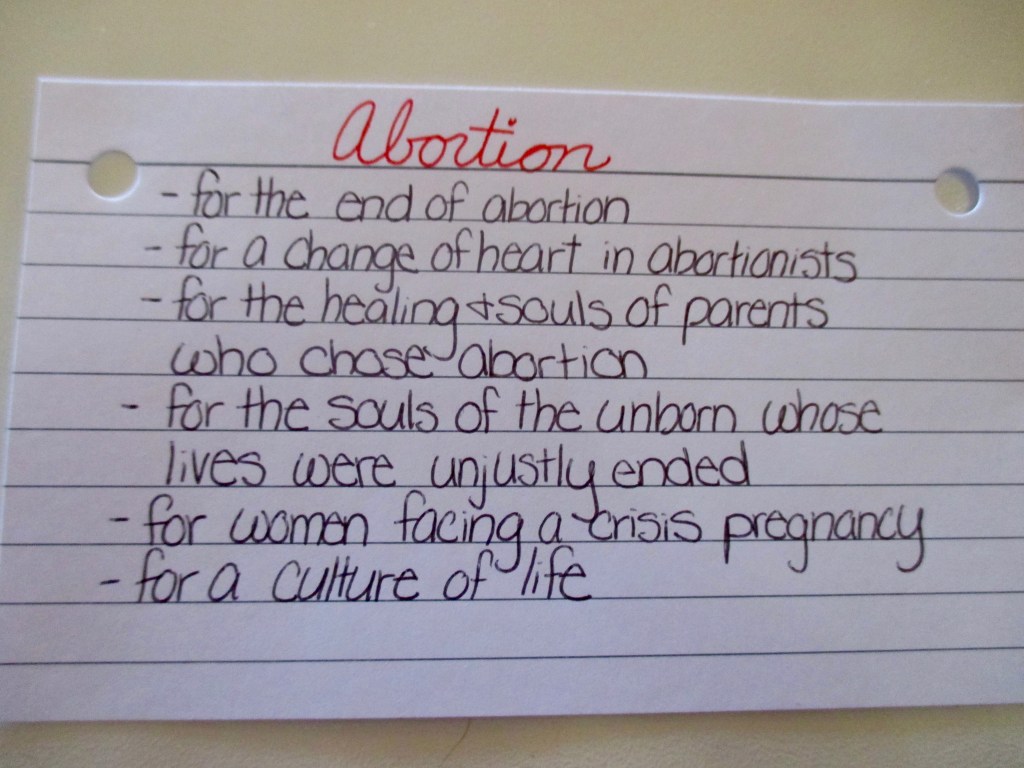 Abortion
- for the end of abortion
- for a change of heart in abortionists
- for the healing + souls of parents
who chose abortion
- for the souls of the unborn whose
lives were unjustly ended
- for women facing a crisis pregnancy
- for a culture of life